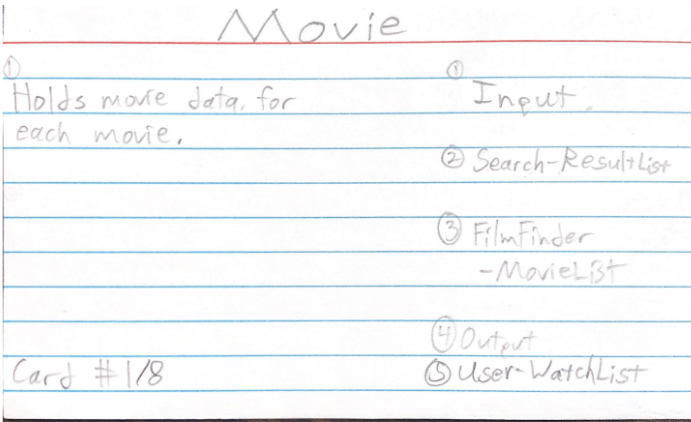 Movie
①
Holds movie data. for
each movie.
①
Input.
② Search-ResultList
③ FilmFinder
-MovieList
④ Output
⑤ User-WatchList
Card #1/8